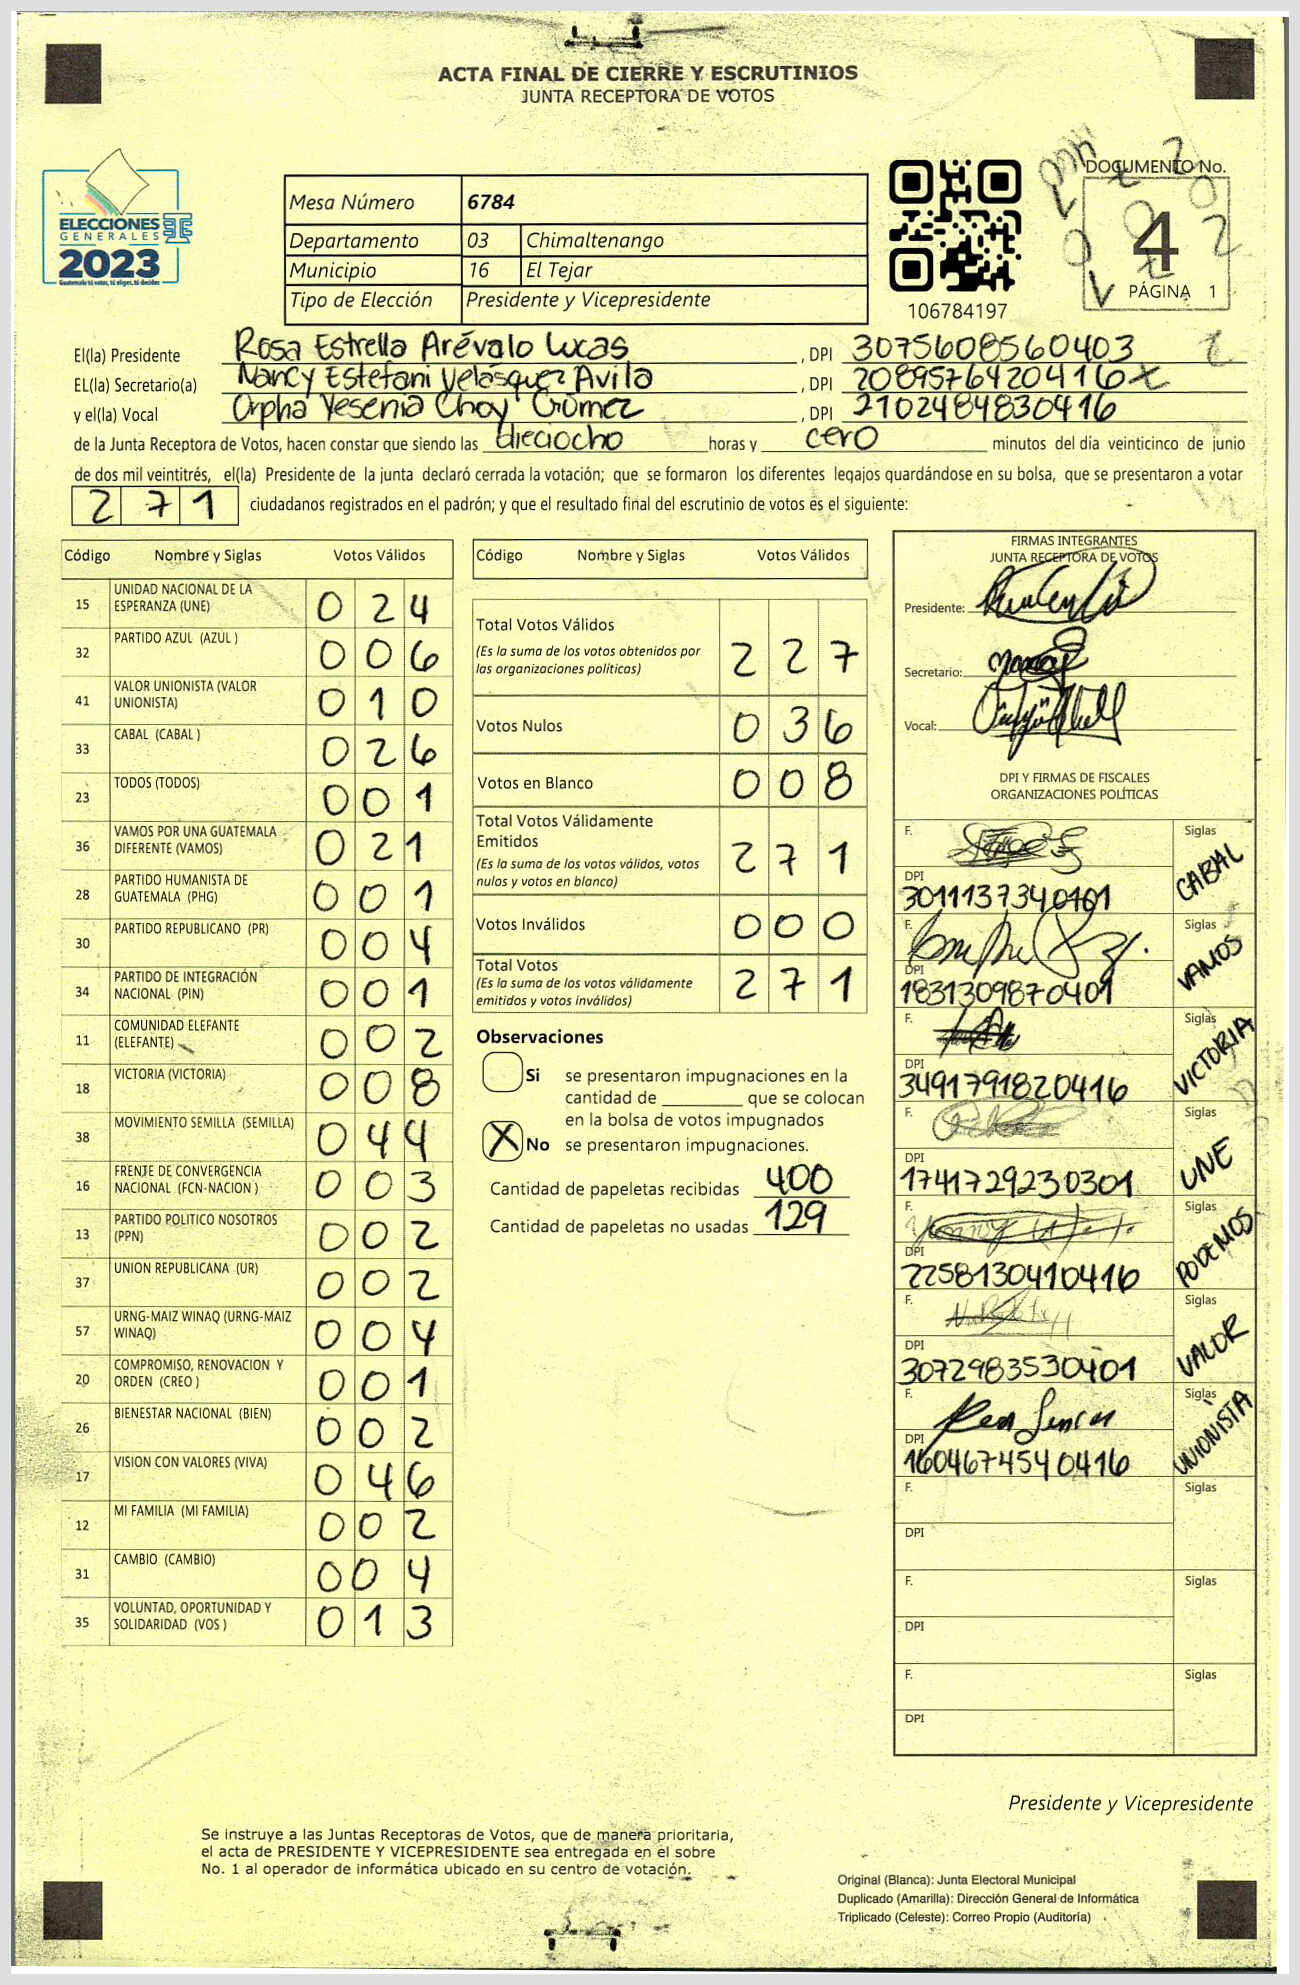 ACTA FINAL DE CIERRE Y ESCRUTINIOS
JUNTA RECEPTORA DE VOTOS
DOCUMENTO No.
4
PÁGINA 1
ELECCIONES
GENERALES
2023
Guatemala tú votas, tú eliges, tú decides
Mesa Número 6784
Departamento 03 Chimaltenango
Municipio 16 El Tejar
Tipo de Elección Presidente y Vicepresidente
106784197
El(la) Presidente Rosa Estrella Arévalo Lucas, DPI 3075608560403
EL(la) Secretario(a) Nancy Estefani Velásquez Avila, DPI 2089576420416
y el(la) Vocal Orpha Yesenia Choy Gómez, DPI 2102484830416
de la Junta Receptora de Votos, hacen constar que siendo las dieciocho horas y cero minutos del día veinticinco de junio
de dos mil veintitrés, el(la) Presidente de la junta declaró cerrada la votación; que se formaron los diferentes legajos quardándose en su bolsa, que se presentaron a votar
271 ciudadanos registrados en el padrón; y que el resultado final del escrutinio de votos es el siguiente:
Código Nombre y Siglas Votos Válidos
15 UNIDAD NACIONAL DE LA ESPERANZA (UNE) 024
32 PARTIDO AZUL (AZUL ) 006
41 VALOR UNIONISTA (VALOR UNIONISTA) 010
33 CABAL (CABAL ) 026
23 TODOS (TODOS) 001
36 VAMOS POR UNA GUATEMALA DIFERENTE (VAMOS) 021
28 PARTIDO HUMANISTA DE GUATEMALA (PHG) 001
30 PARTIDO REPUBLICANO (PR) 004
34 PARTIDO DE INTEGRACIÓN NACIONAL (PIN) 001
11 COMUNIDAD ELEFANTE (ELEFANTE) 002
18 VICTORIA (VICTORIA) 008
38 MOVIMIENTO SEMILLA (SEMILLA) 044
16 FRENTE DE CONVERGENCIA NACIONAL (FCN-NACION ) 003
13 PARTIDO POLITICO NOSOTROS (PPN) 002
37 UNION REPUBLICANA (UR) 002
57 URNG-MAIZ WINAQ (URNG-MAIZ WINAQ) 004
20 COMPROMISO, RENOVACION Y ORDEN (CREO ) 001
26 BIENESTAR NACIONAL (BIEN) 002
17 VISION CON VALORES (VIVA) 046
12 MI FAMILIA (MI FAMILIA) 002
31 CAMBIO (CAMBIO) 004
35 VOLUNTAD, OPORTUNIDAD Y SOLIDARIDAD (VOS ) 013
Código Nombre y Siglas Votos Válidos
Total Votos Válidos 227
(Es la suma de los votos obtenidos por
las organizaciones politicas)
Votos Nulos 036
Votos en Blanco 008
Total Votos Válidamente
Emitidos 271
(Es la suma de los votos válidos, votos
nulos y votos en blanco)
Votos Inválidos 000
Total Votos 271
(Es la suma de los votos válidamente
emitidos y votos inválidos)
Observaciones
Si se presentaron impugnaciones en la
cantidad de ________ que se colocan
en la bolsa de votos impugnados
X No se presentaron impugnaciones.
Cantidad de papeletas recibidas 400
Cantidad de papeletas no usadas 129
FIRMAS INTEGRANTES
JUNTA RECEPTORA DE VOTOS
Presidente:
Secretario:
Vocal:
DPI Y FIRMAS DE FISCALES
ORGANIZACIONES POLÍTICAS
F. Siglas CABAL
DPI 3011137340101
F. Siglas VAMOS
DPI 1831309870401
F. Siglas VICTORIA
DPI 3491791820416
F. Siglas UNE
DPI 1741729230301
F. Siglas PODEMOS
DPI 2258130410416
F. Siglas VALOR
DPI 3072983530401
F. Siglas UNIONISTA
DPI 1604674540416
F. Siglas
DPI
F. Siglas
DPI
F. Siglas
DPI
Presidente y Vicepresidente
Se instruye a las Juntas Receptoras de Votos, que de manera prioritaria,
el acta de PRESIDENTE Y VICEPRESIDENTE sea entregada en el sobre
No. 1 al operador de informática ubicado en su centro de votación.
Original (Blanca): Junta Electoral Municipal
Duplicado (Amarilla): Dirección General de Informática
Triplicado (Celeste): Correo Propio (Auditoría)